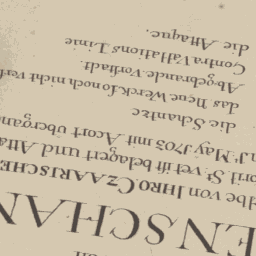 ENSCHAN
lbe von IHRO CZAARISCHE
St. Vet ist belagert und Atta
May 1703 mit Acort übergan
die Schantze
das neue Werck so noch nicht verf
Abgebrande Vorstadt.
Contra Vallations Linie
die Attaque.